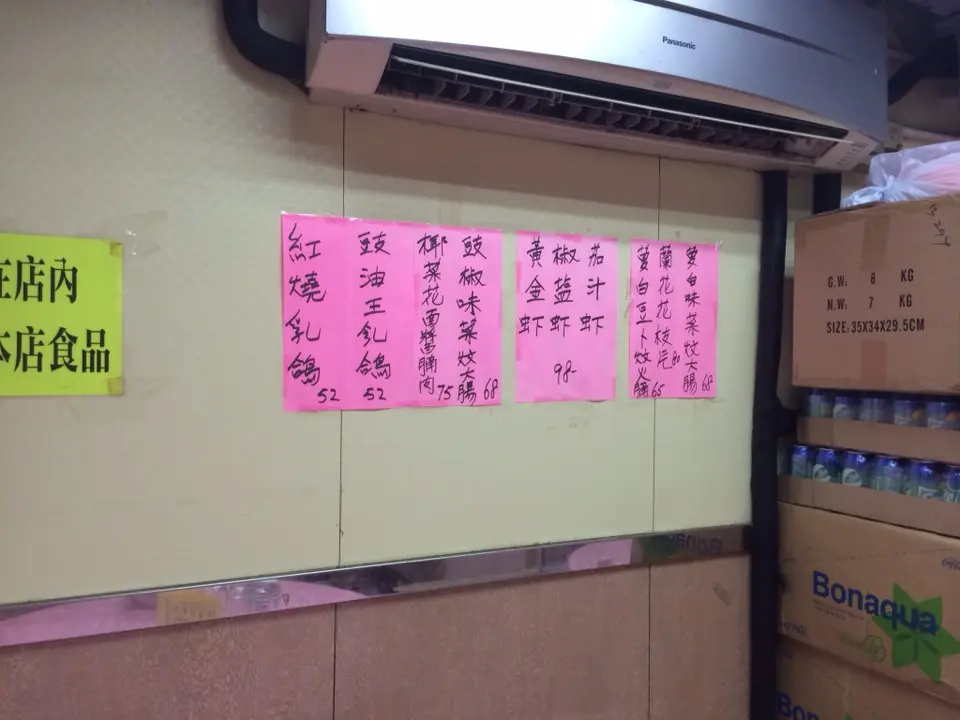 Panasonic
在店內
本店食品
紅燒乳鴿
52
豉油王乳鴿
52
椰菜花面醬腩肉
75
豉椒味菜炆大腸
68
黃金虾
椒盐虾
茄汁虾
98-
萝白豆卜炆火腩
65
蘭花花枝片
80
萝白味菜炆大腸
68
G.W: 8 KG
N.W: 7 KG
SIZE:35X34X29.5CM
Bonaqua